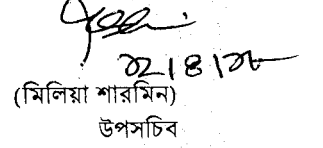 ২১/৪/২৮
(মিলিয়া শারমিন)
উপসচিব